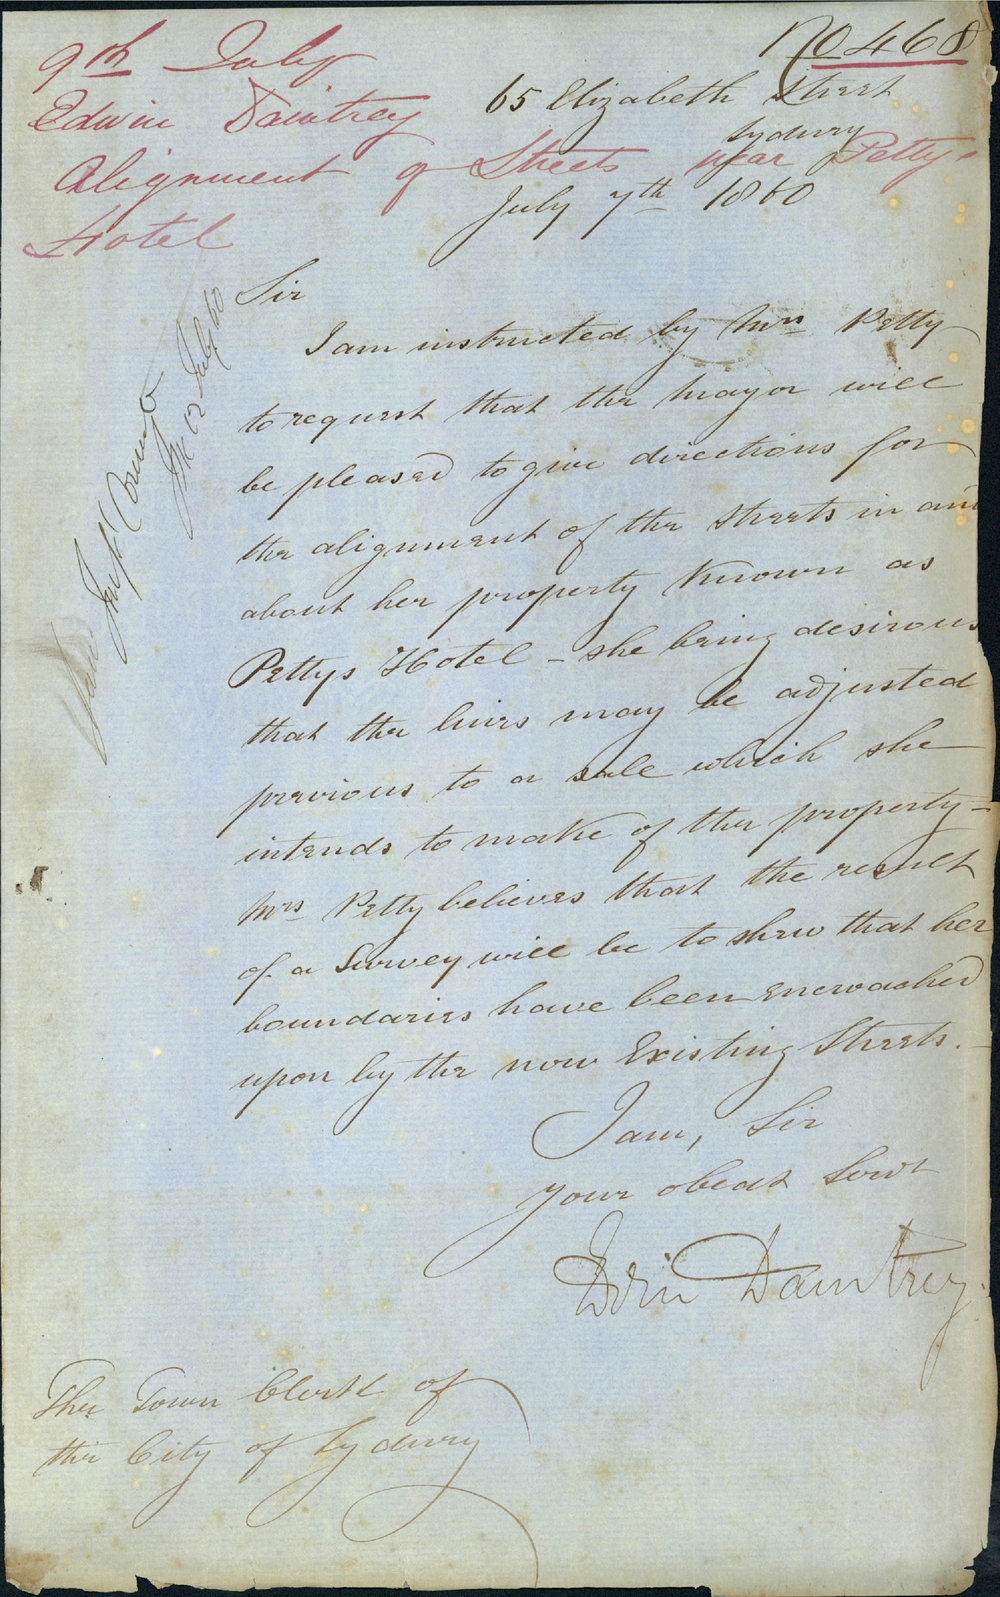 No 468
9th July
Edwin Daintrey
Alignment of Streets near Petty's
Hotel
65 Elizabeth Street
Sydney
July 7th 1860
Sir
I am instructed by Mrs Petty
to request that the Mayor will
be pleased to give directions for
the alignment of the Streets in and
about her property known as
Pettys Hotel - she being desirous
that the lines may be adjusted
previous to a sale which she
intends to make of the property -
Mrs Petty believes that the result
of a Survey will be to shew that her
boundaries have been encroached
upon by the now Existing Streets. -
I am, Sir
Your obedt Servt
Edwin Daintrey.
The Town Clerk of
the City of Sydney
12 July 60